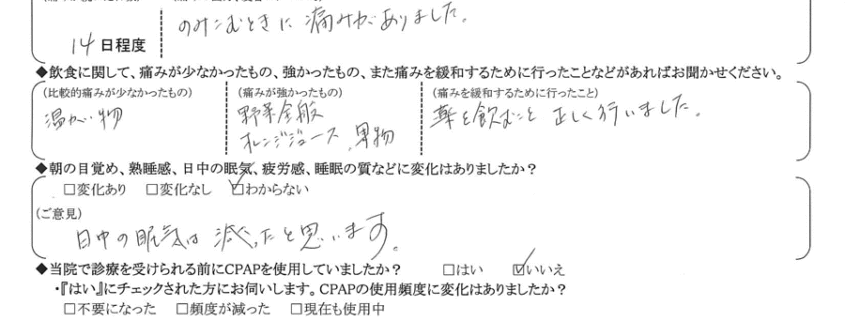 のみこむときに痛みがありました。
14日程度
◆飲食に関して、痛みが少なかったもの、強かったもの、また痛みを緩和するために行ったことなどがあればお聞かせください。
(比較的痛みが少なかったもの) (痛みが強かったもの) (痛みを緩和するために行ったこと)
温かい物 野菜全般 薬を飲むこと 正しく行いました。
オレンジジュース、果物
◆朝の目覚め、熟睡感、日中の眠気、疲労感、睡眠の質などに変化はありましたか？
□変化あり □変化なし ☑わからない
(ご意見)
日中の眠気は減ったと思います。
◆当院で診療を受けられる前にCPAPを使用していましたか？ □はい ☑いいえ
・『はい』にチェックされた方にお伺いします。CPAPの使用頻度に変化はありましたか？
□不要になった □頻度が減った □現在も使用中